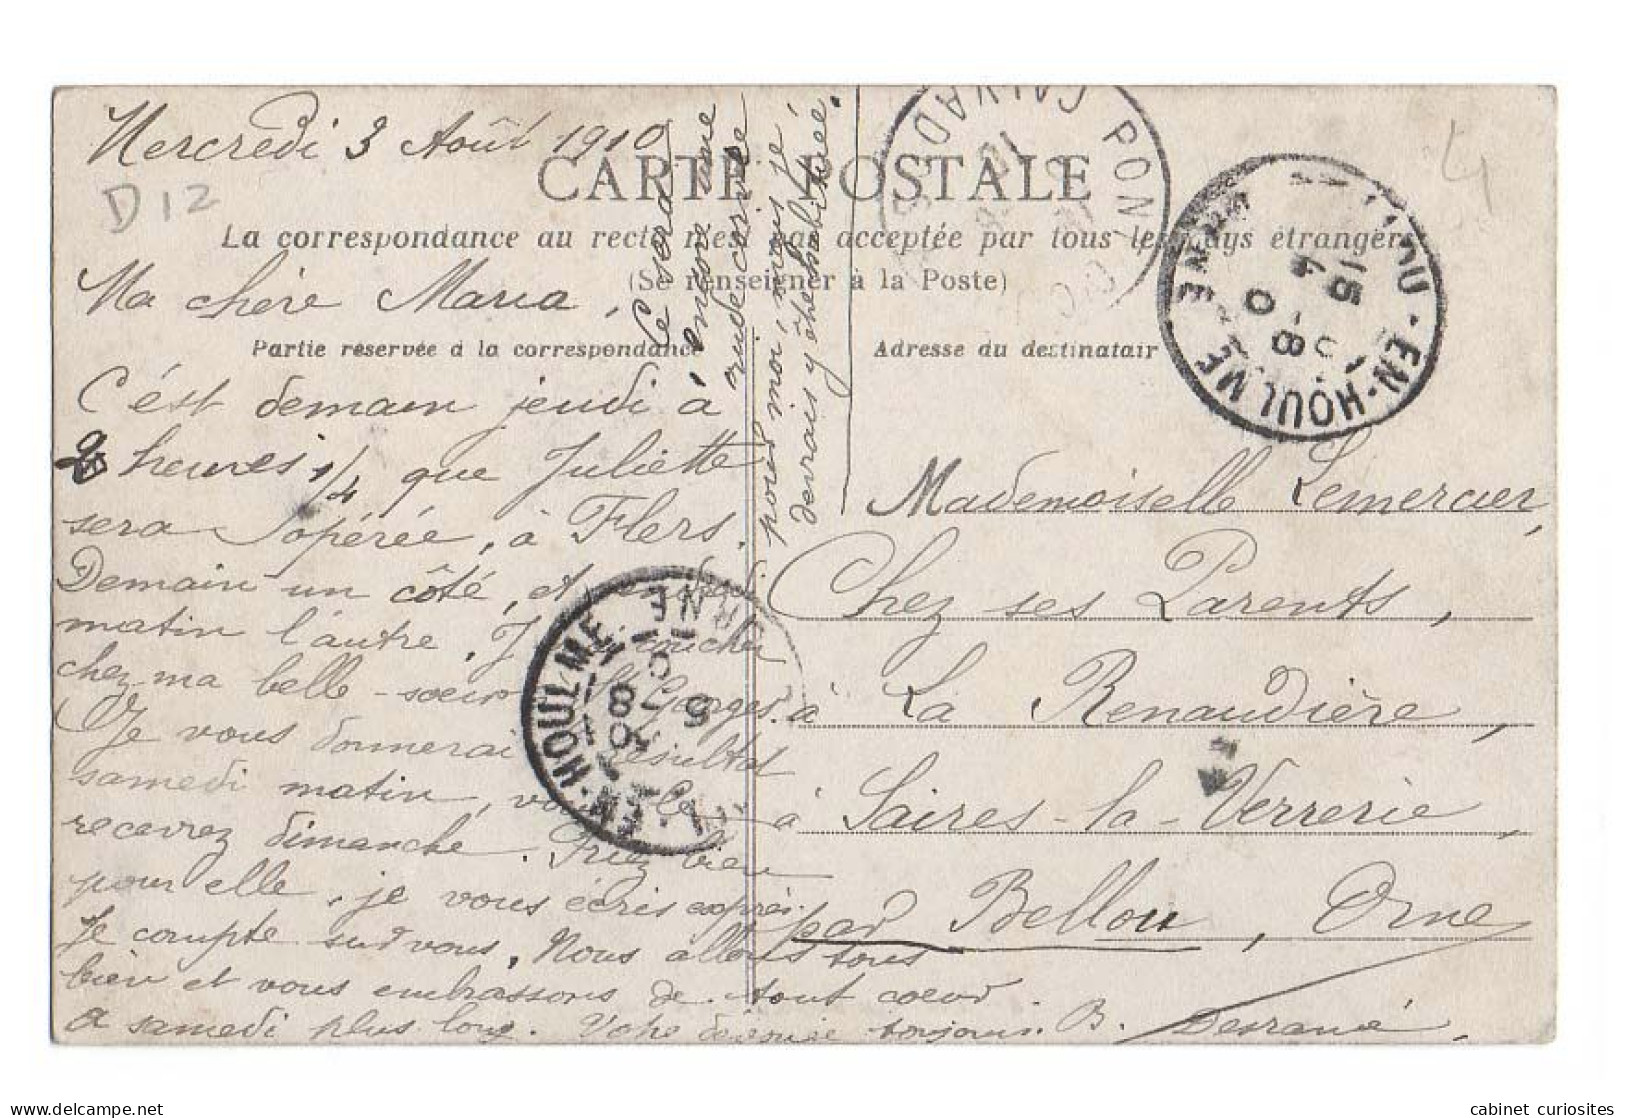 Mercredi 3 Août 1910
D12
4
CARTE POSTALE
La correspondance au recto n'est pas acceptée par tous les pays étrangers
(Se renseigner à la Poste)
Partie réservée à la correspondance
Adresse du destinatair
PONT
CALVADOS
EN-HOULME
15
4
8
EN-HOULME
ORNE
5
8
10
Ma chère Maria,
C'ést demain jeudi à
2 heures 1/4 que Juliette
sera opérée, à Flers.
Demain un côté, et
matin l'autre, coucher
chez ma belle-soeur St Georges.
Je vous donnerai résultat
samedi matin, vous le
recevrez dimanche. Priez bien
pour elle, je vous écris exprès.
Je compte sur vous. Nous allons tous
bien et vous embrassons de tout coeur.
A samedi plus long. Votre dévouée toujours. B. Desramé
Ce sera
encore une
rude corvée
pour moi, mais je
devrais y être habituée.
Mademoiselle Lemercier,
Chez ses Parents,
à La Renaudière,
à Saires-la-Verrerie,
par Bellou, Orne
cabinet_curiosites
www.delcampe.net